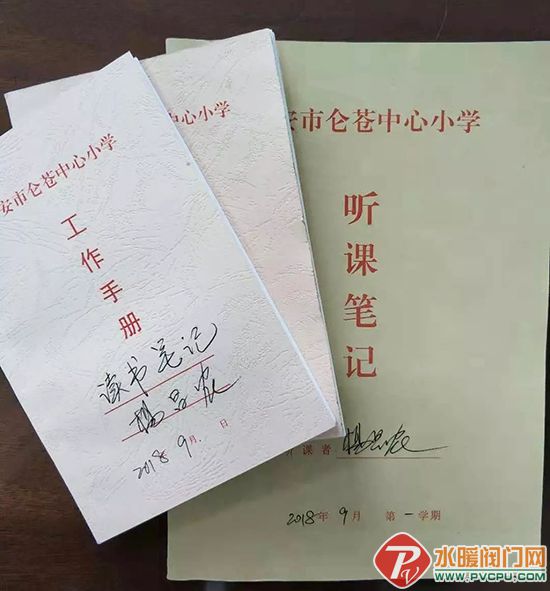 安市仑苍中心小学
工作手册
读书笔记
2018年9月 日
中心小学
安市仑苍中心小学
听课笔记
听课者
2018年9月 第一学期
水暖阀门网
www.PVCPU.com